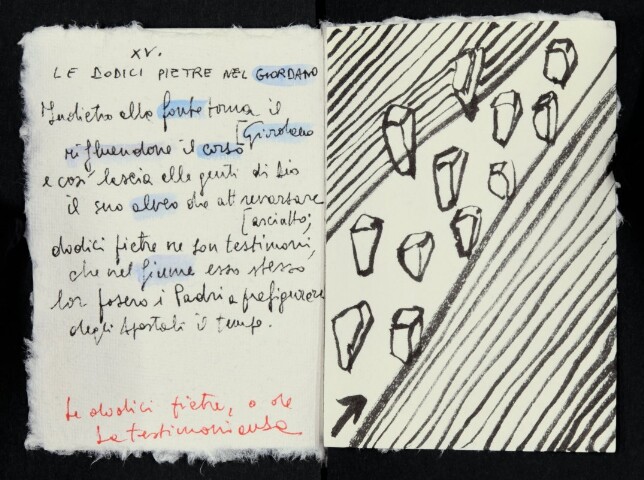 XV.
LE DODICI PIETRE NEL GIORDANO
Indietro alla fonte torna il
[Giordano
rifluendone il corso
e così lascia alle genti di Dio
il suo alveo che attraversare
[asciutto;
dodici pietre ne son testimoni,
che nel fiume esso stesso
lor posero i Padri a prefigurare
degli Apostoli il tempo.
Le dodici pietre, o de
La testimonianza